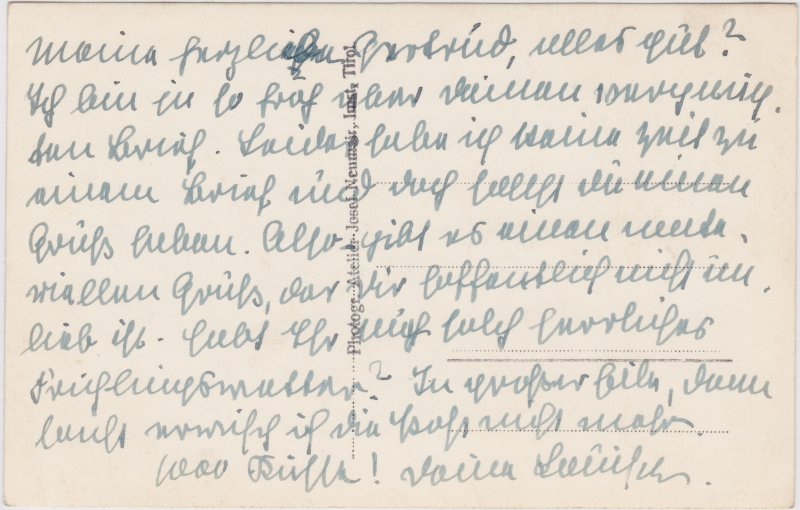 Meine herzliebe Gertrud, alles gut?
Ich bin ja so froh über deinen vergnüg-
ten Brief. Leider habe ich keine Zeit zu
einem Brief und doch sollst du einen
Gruß haben. Also gibt es einen mate-
riellen Gruß, der dir hoffentlich nicht un-
lieb ist. Habt Ihr auch solch herrliches
Frühlingswetter? In großer Eile, denn
sonst erwisch ich die Post nicht mehr.
1000 Küsse! Deine
Photogr. Atelier Josef Neumair, Imst, Tirol